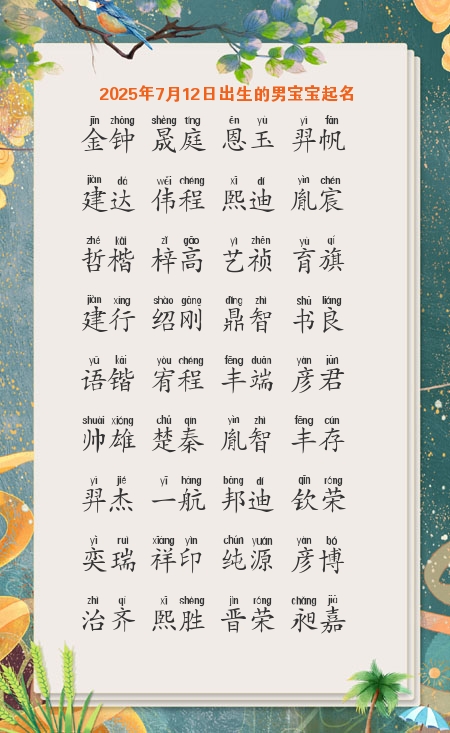 2025年7月12日出生的男宝宝起名
jīn zhōng shèng tíng ēn yù yì fān
金钟 晟庭 恩玉 羿帆
jiàn dá wěi chéng xī dí yìn chén
建达 伟程 熙迪 胤宸
zhé kǎi zǐ gāo yì zhēn yù qí
哲楷 梓高 艺祯 育旗
jiàn xíng shào gāng dǐng zhì shū liáng
建行 绍刚 鼎智 书良
yǔ kǎi yòu chéng fēng duān yàn jūn
语锴 宥程 丰端 彦君
shuài xióng chǔ qín yìn zhì fēng cún
帅雄 楚秦 胤智 丰存
yì jié yī háng bāng dí qīn róng
羿杰 一航 邦迪 钦荣
yì ruì xiáng yìn chún yuán yàn bó
奕瑞 祥印 纯源 彦博
zhì qí xī shèng jìn róng chǎng jiā
治齐 熙胜 晋荣 昶嘉